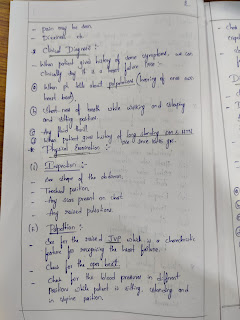 - pain may be seen
- Dizziness etc.
* Clinical Diagnosis :-
- When patient gives history of some symptoms, we can
clinically say it is a heart failure case :-
@ When pt. tells about palpitation (hearing of ones own
heart beat),
(b) Shortness of breath while walking and sleeping
and sitting position.
Any fluid
@ When patient gives history of long standing DM & HTN
* Physical Examination :-
(i) Inspection :-
- See shape of the abdomen.
- Tracheal position.
- Any scar present on chest.
- Any raised pulsations.
Palpation :-
- See for the raised JVP which is a characteristic
feature for recognizing the heart failure.
- Check for the apex beat.
- Check for the blood pressure in different
position while patient is sitting, standing and
in supine position.